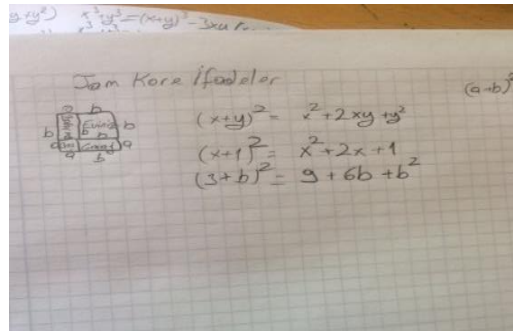 x³+y³=(x+y)³-3xy
Tam Kare İfadeler
(a-b)²
a b
b b
a a
a b
(x+y)²= x²+2xy+y²
(x+1)²= x²+2x+1
(3+b)²= 9+6b+b²